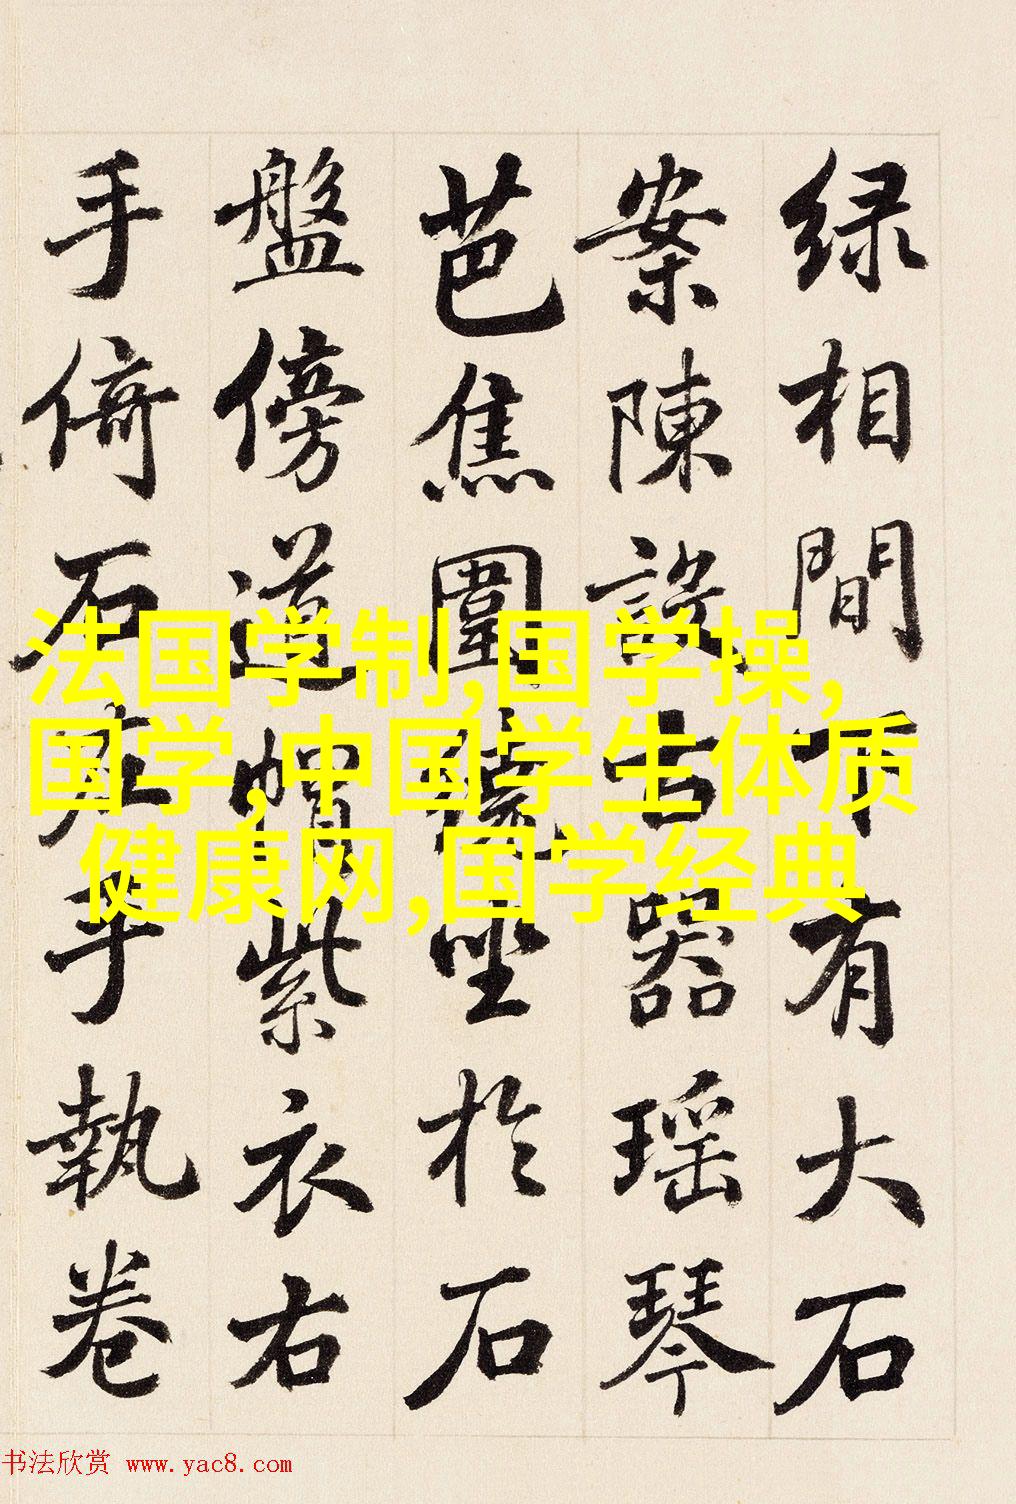 绿相間下有大石
案陳設古器瑶琴
芭焦圍繞坐於石
盤傍道帽紫衣右
手倚石左手執卷
法国学制,国学操,
国学,中国学生体质
健康网,国学经典
书法欣赏 www.yac8.com